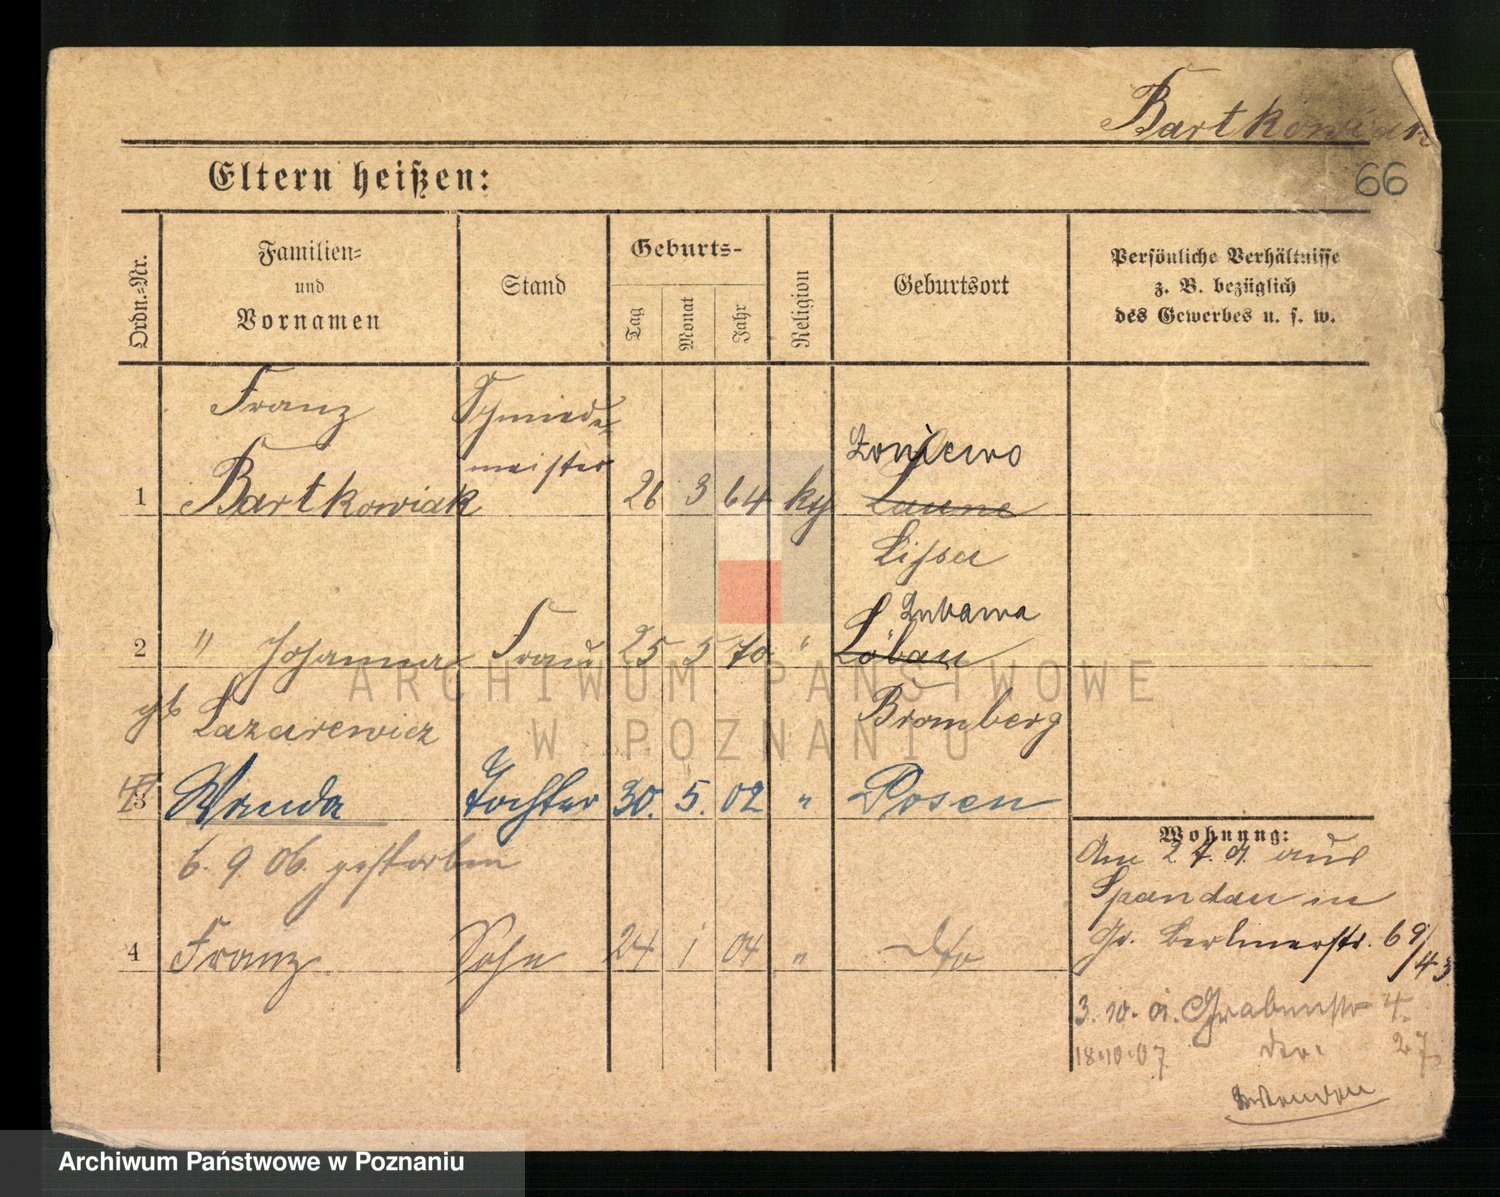 Bartkowiak
66
Eltern heißen:
Ordn.-Nr.
Familien-
und
Vornamen
Stand
Geburts-
Tag
Monat
Jahr
Religion
Geburtsort
Persönliche Verhältnisse
z. B. bezüglich
des Gewerbes u. s. w.
Franz Schmiede-
meister
1 Bartkowiak 26 3 64 Laune
Lissa
Lubawa
2 " Johanna Frau 25 5 70 " Löbau
gb Lazarewicz Bromberg
3 Wanda Tochter 30. 5. 02 " Posen
6. 9. 06. gestorben
4 Franz Sohn 24 1 04 " dto
Wohnung:
Am 27. 9. aus
Spandau in
Gr. Berlinerstr. 69/43
3. 10. 01. Grabenstr 4.
18.10.07 27
ARCHIWUM PAŃSTWOWE
W POZNANIU
Archiwum Państwowe w Poznaniu